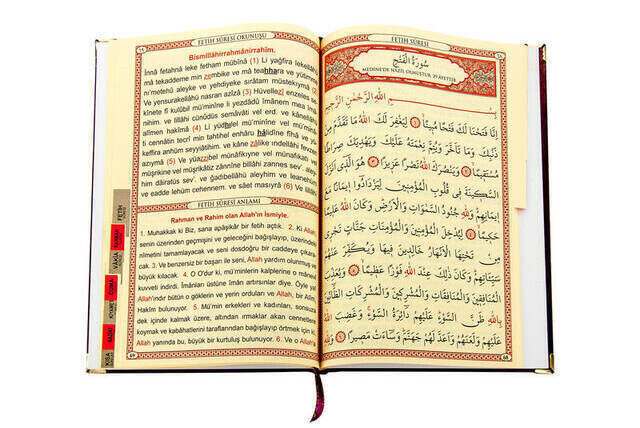 FETİH SÛRESİ OKUNUŞU
Bismillâhirrahmânirrahîm.
İnnâ fetahnâ leke fetham mübînâ (1) Li yağfira lekellâhü
mâ tekaddeme min zembike ve mâ teahhara ve yütimme
ni'metehû aleyke ve yehdiyeke sırâtam müstekîymâ (2)
Ve yensurakellâhü nasran azîzâ (3) Hüvellezî enzeles se
kînete fî kulûbil mü'minîne li yezdâdû îmânem mea îmâ
nihim. ve lillâhi cünûdüs semâvâti vel erd. ve kânellâhü
alîmen hakîmâ (4) Li yüdhılel mü'minîne vel mü'minâ
ti cennâtin tecrî min tahtihel enhâru hâlidîne fîhâ ve yü
keffira anhüm seyyiâtihim. ve kâne zâlike indellâhi fevzen
azıymâ (5) Ve yüazzibel münâfikıyne vel münâfikâti vel
müşrikîne vel müşrikâtiz zânnîne billâhi zannes sev'. aley
him dâiratüs sev'. ve ğadıbellâhü aleyhim ve leanehüm
ve eadde lehüm cehennem. ve sâet masıyrâ (6) Ve lillâhi
FETİH SÛRESİ ANLAMI
Rahman ve Rahim olan Allah'ın İsmiyle.
1. Muhakkak ki Biz, sana apaşikâr bir fetih açtık. 2. Ki Allah,
senin üzerinden geçmişini ve geleceğini bağışlayıp, üzerindeki
nîmetini tamamlayacak ve seni dosdoğru bir caddeye çıkara
cak. 3. Ve benzersiz bir başarı ile seni, Allah yardım olunmuş ve
büyük kılacak. 4. O O'dur ki, mü'minlerin kalplerine o mâne
kuvveti indirdi. İmânları üstüne îmân artırsınlar diye. Öyle ya
Allah'ındır bütün o göklerin ve yerin orduları ve Allah, bir Alîm
Hakîm bulunuyor. 5. Mü'min erkekleri ve kadınları, sonsuza
dek içinde kalmak üzere, altından ırmaklar akan cennetlere
koymak ve kabahatlerini taraflarından bağışlayıp örtmek için ki,
Allah yanında bu, büyük bir kurtuluş bulunuyor. 6. Ve o Allah'a
69
FETİH
VÂKIA
CUMA
KISA
FETİH SÛRESİ
سُورَةُ الْفَتْحِ
MEDİNE'DE NÂZİL OLMUŞTUR, 29 ÂYETTİR
بِسْمِ اللّٰهِ الرَّحْمٰنِ الرَّحِيمِ
اِنَّا فَتَحْنَا لَكَ فَتْحًا مُبِينًا ﴿١﴾ لِيَغْفِرَ لَكَ اللّٰهُ مَا تَقَدَّمَ مِنْ
ذَنْبِكَ وَمَا تَاَخَّرَ وَيُتِمَّ نِعْمَتَهُ عَلَيْكَ وَيَهْدِيَكَ صِرَاطًا
مُسْتَقِيمًا ﴿٢﴾ وَيَنْصُرَكَ اللّٰهُ نَصْرًا عَزِيزًا ﴿٣﴾ هُوَ الَّذِى اَنْزَلَ
السَّكِينَةَ فِى قُلُوبِ الْمُؤْمِنِينَ لِيَزْدَادُوا اِيمَانًا مَعَ
اِيمَانِهِمْ وَلِلّٰهِ جُنُودُ السَّمٰوَاتِ وَالْاَرْضِ وَكَانَ اللّٰهُ عَلِيمًا
حَكِيمًا ﴿٤﴾ لِيُدْخِلَ الْمُؤْمِنِينَ وَالْمُؤْمِنَاتِ جَنَّاتٍ تَجْرِى
مِنْ تَحْتِهَا الْاَنْهَارُ خَالِدِينَ فِيهَا وَيُكَفِّرَ عَنْهُمْ
سَيِّـَٔاتِهِمْ وَكَانَ ذٰلِكَ عِنْدَ اللّٰهِ فَوْزًا عَظِيمًا ﴿٥﴾ وَيُعَذِّبَ
الْمُنَافِقِينَ وَالْمُنَافِقَاتِ وَالْمُشْرِكِينَ وَالْمُشْرِكَاتِ الظَّٓانِّينَ
بِاللّٰهِ ظَنَّ السَّوْءِ عَلَيْهِمْ دَٓائِرَةُ السَّوْءِ وَغَضِبَ اللّٰهُ
عَلَيْهِمْ وَلَعَنَهُمْ وَاَعَدَّ لَهُمْ جَهَنَّمَ وَسَٓاءَتْ مَصِيرًا ﴿٦﴾ وَلِلّٰهِ
68